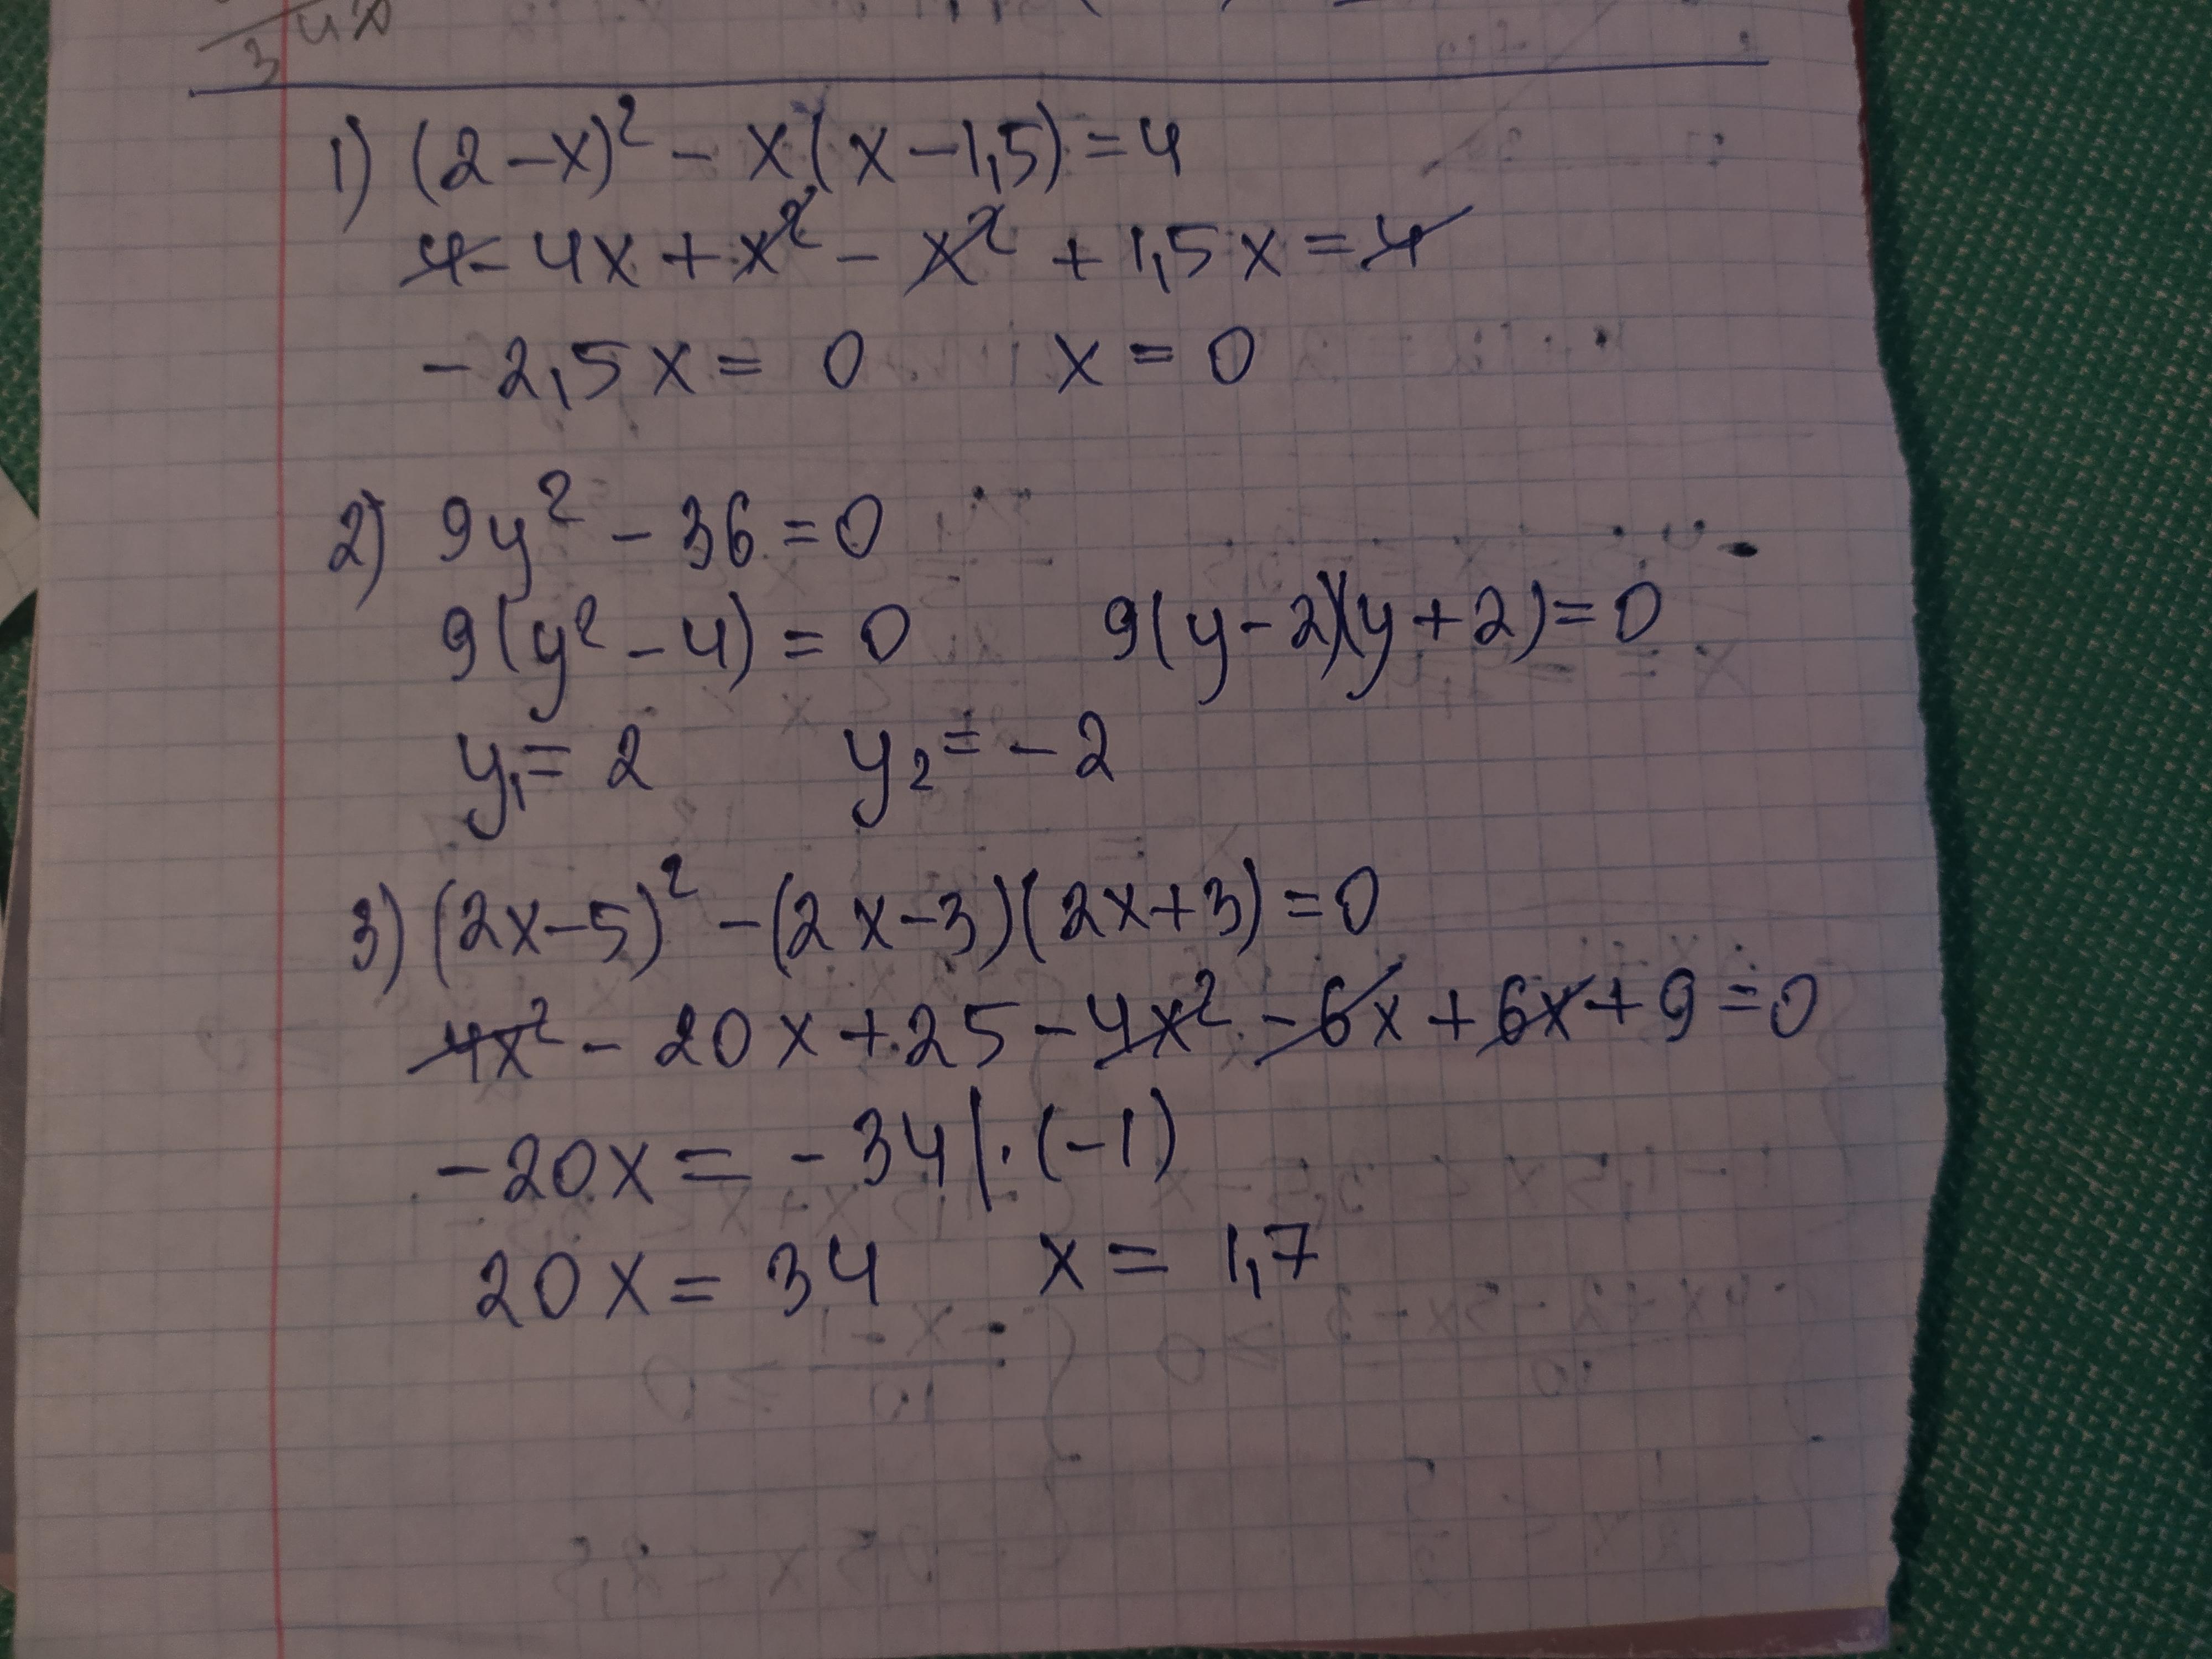 3 4x
1) (2-x)² - x(x-1,5)=4
4-4x+x²-x²+1,5x=4
-2,5x=0 x=0
2) 9y²-36=0
9(y²-4)=0 9(y-2)(y+2)=0
y₁=2 y₂=-2
3) (2x-5)²-(2x-3)(2x+3)=0
4x²-20x+25-4x²-6x+6x+9=0
-20x=-34|·(-1)
20x=34 x=1,7